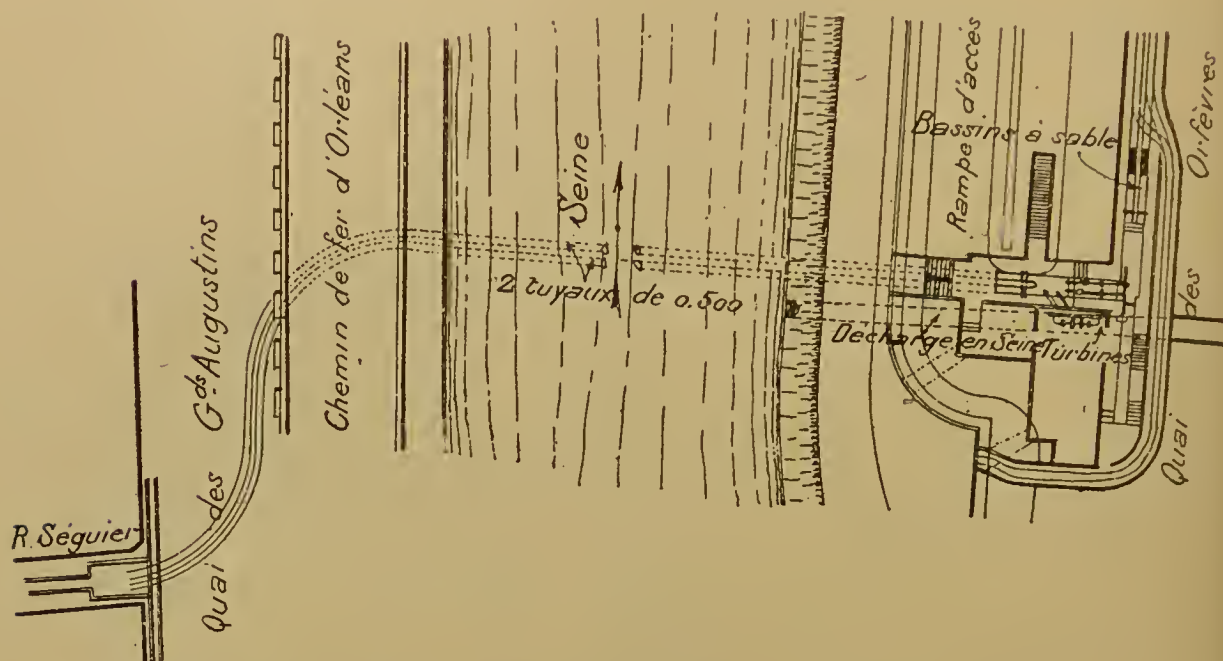 R. Séguier
Quai des Gds. Augustins
Chemin de fer d'Orléans
Seine
2 tuyaux de 0.500
Rampe d'accès
Bassins à sable
Décharge en Seine
Turbines
Quai des Orfèvres